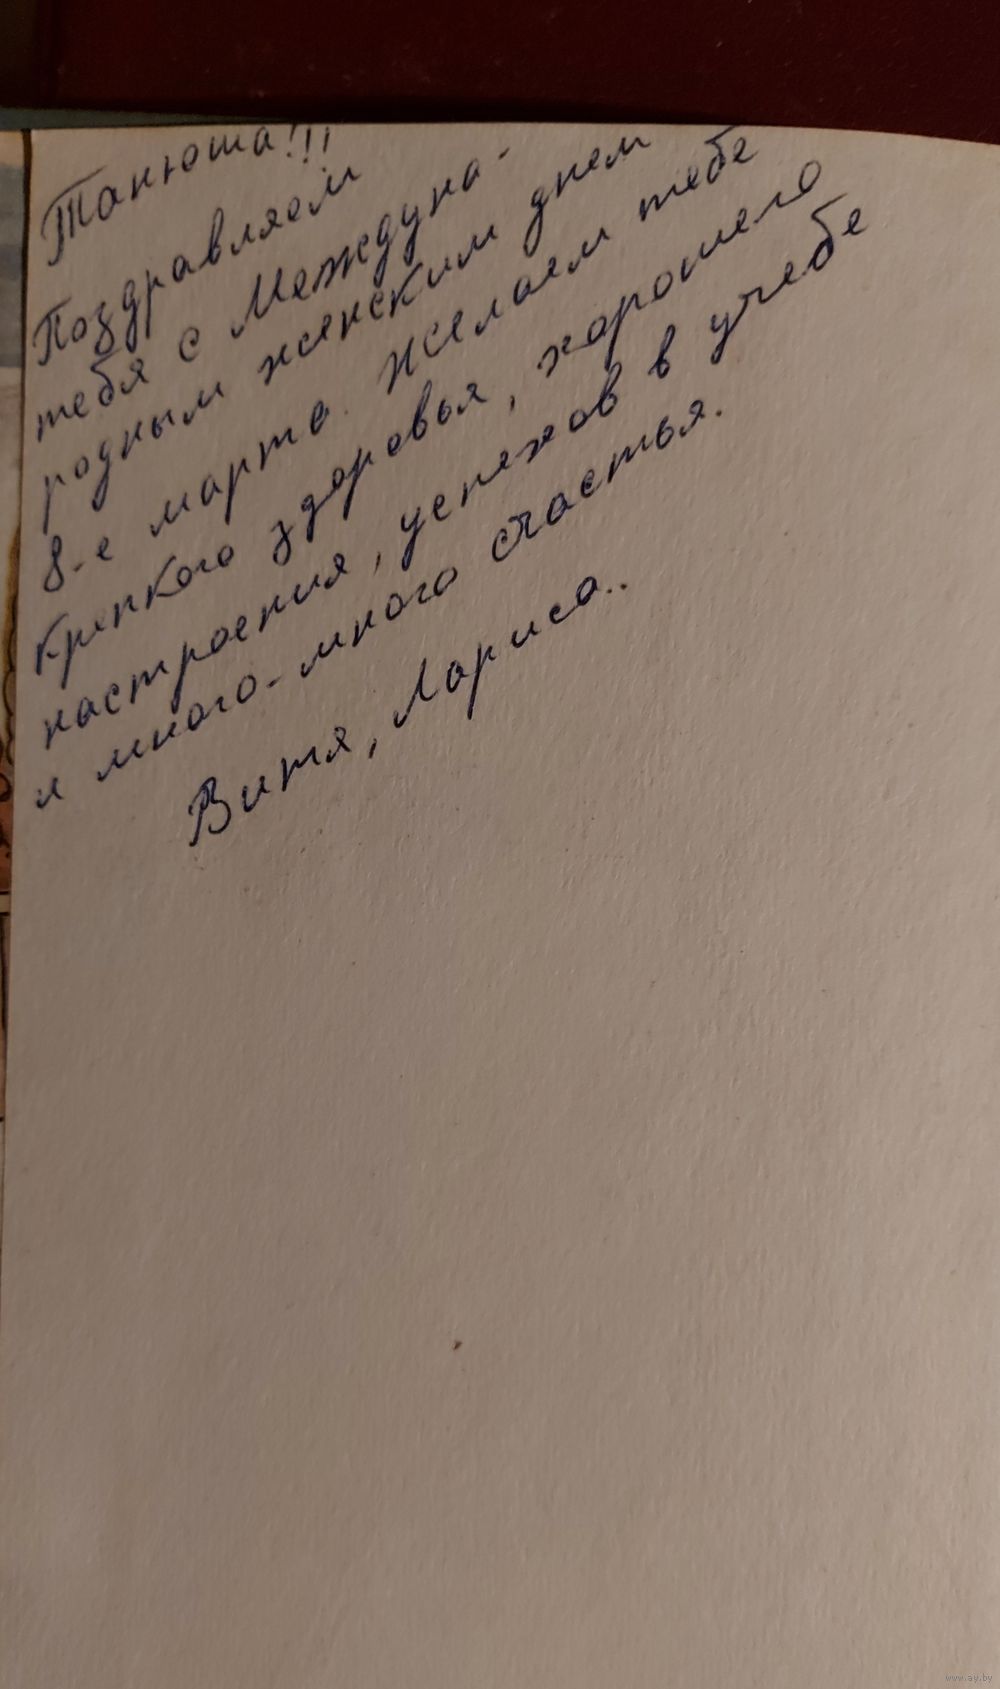 Танюша!!!
Поздравляем
тебя с Междуна-
родным женским днем
8-е марта. Желаем тебе
крепкого здоровья, хорошего
настроения, успехов в учебе
и много-много счастья.
Витя, Лариса..
www.ay.by